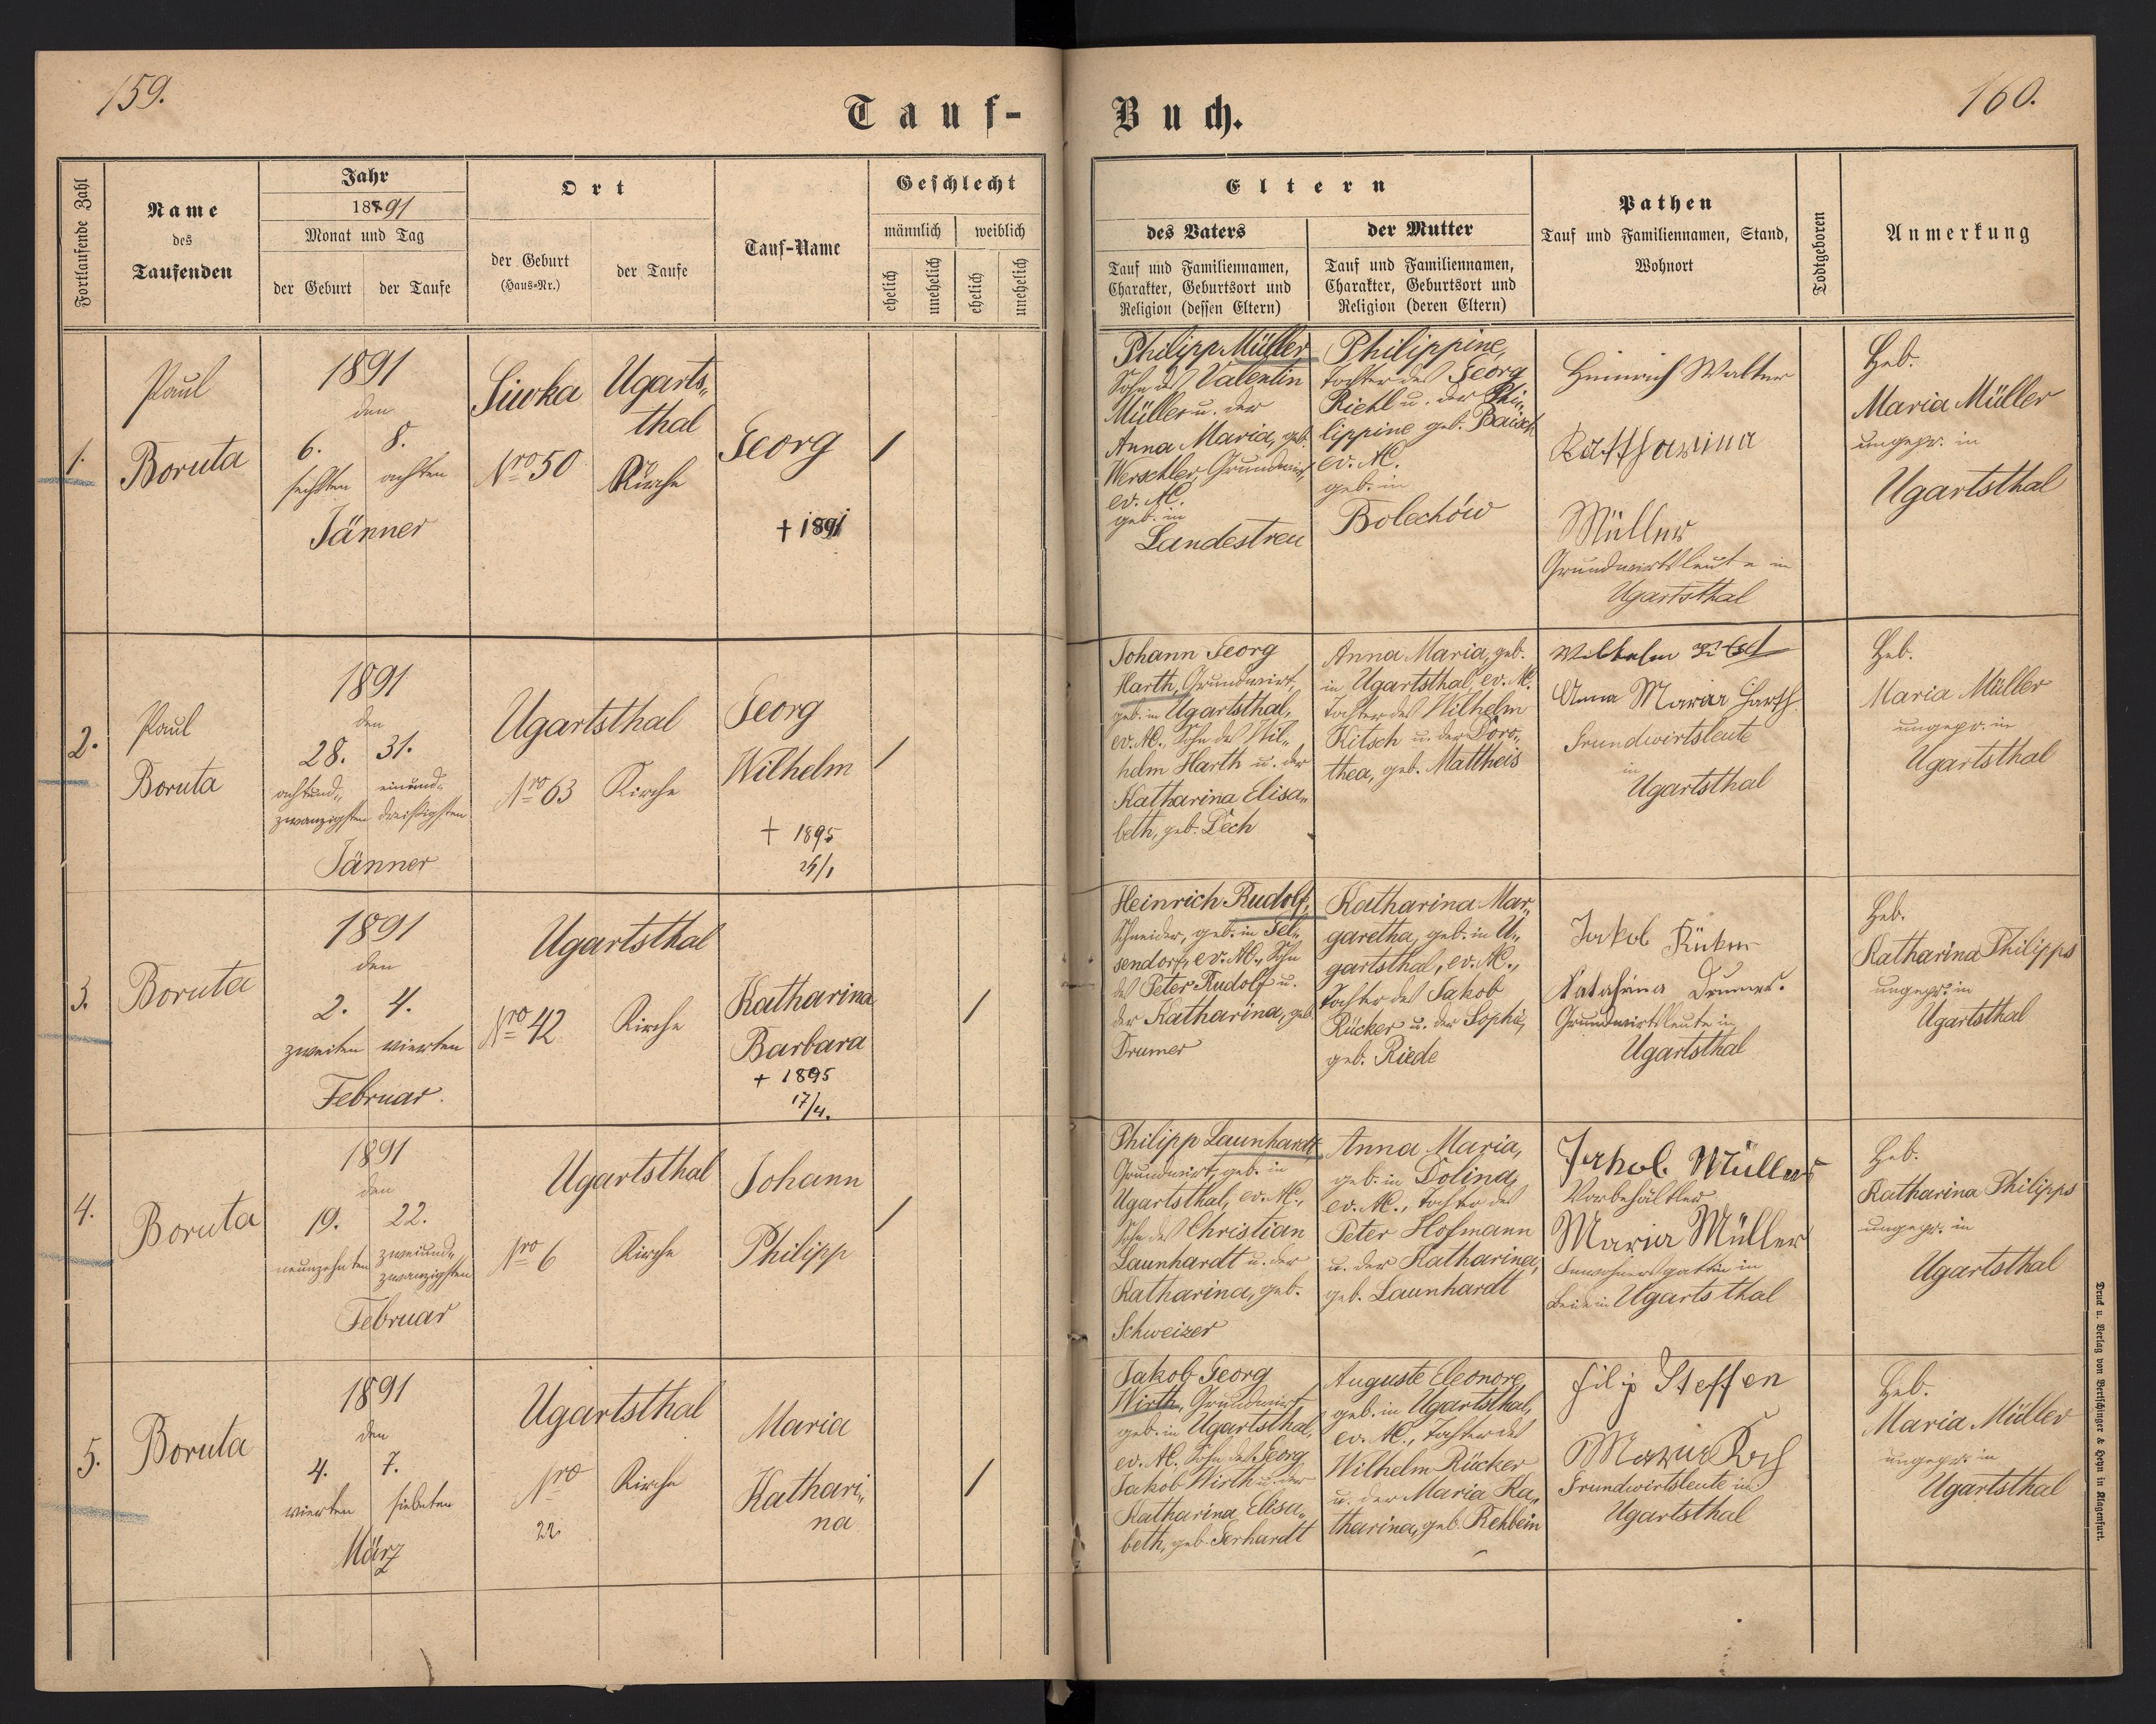 159.
160.
Tauf-
Buch.
Fortlaufende Zahl
Name
des
Taufenden
Jahr
18791
Monat und Tag
der Geburt
der Taufe
Ort
der Geburt
(Haus=Nr.)
der Taufe
Tauf-Name
Geschlecht
männlich
weiblich
ehelich
unehelich
ehelich
unehelich
Eltern
des Vaters
Tauf und Familiennamen,
Charakter, Geburtsort und
Religion (dessen Eltern)
der Mutter
Tauf und Familiennamen,
Charakter, Geburtsort und
Religion (deren Eltern)
Pathen
Tauf und Familiennamen, Stand,
Wohnort
Todtgeboren
Anmerkung
1.
Paul
Boruta
1891
den
6.
8.
sechsten
achten
Jänner
Siwka
Nro 50
Ugarts„
thal
Kirche
Georg
+ 1891
/
Philipp Müller
Sohn des Valentin
Müller u. der
Anna Maria, geb.
Werschler, Grundwirt,
ev. AC.
geb. in
Landestreu
Philippine,
Tochter des Georg
Riehl u. der Phi„
lippine geb. Baisch
ev. AC.
geb. in
Bolechów
Heinrich Walter
Katharina
Müller
Grundwirtsleute in
Ugartsthal
Heb.
Maria Müller
ungepr. in
Ugartsthal
2.
Paul
Boruta
1891
den
28.
31.
achtund„
einund„
zwanzigsten
dreißigsten
Jänner
Ugartsthal
Nro 63
Kirche
Georg
Wilhelm
+ 1895
/
Johann Georg
Harth, Grundwirt,
geb. in Ugartsthal,
ev. AC., Sohn des Wil„
helm Harth u. der
Katharina Elisa„
beth, geb. Dech
Anna Maria, geb.
in Ugartsthal, ev. AC.
Tochter des Wilhelm
Kitsch u. der Doro„
thea, geb. Mattheis
Wilhelm
Anna Maria Harth
Grundwirtsleute
in
Ugartsthal
Heb.
Maria Müller
ungepr. in
Ugartsthal
3.
Boruta
1891
den
2.
4.
zweiten
vierten
Februar.
Ugartsthal
Nro 42
Kirche
Katharina
Barbara
+ 1895
17/4.
/
Heinrich Rudolf,
Schneider, geb. in Fel„
sendorf, ev. AC., Sohn
des Peter Rudolf u.
der Katharina, geb.
Drumer
Katharina Mar„
garetha, geb. in U„
gartsthal, ev. AC.,
Tochter des Jakob
Rücker u. der Sophie,
geb. Riede
Jakob Rüker
Katahrina Drumer.
Grundwirtsleute in
Ugartsthal
Heb.
Katharina Philipps
ungepr. in
Ugartsthal
4.
Boruta
1891
den
19.
22.
neunzehnten
zweiund„
zwanzigsten
Februar
Ugartsthal
Nro 6
Kirche
Johann
Philipp
/
Philipp Launhardt,
Grundwirt, geb. in
Ugartsthal, ev. AC.,
Sohn des Christian
Launhardt u. der
Katharina, geb.
Schweizer
Anna Maria,
geb. in Dolina,
ev. AC., Tochter des
Peter Hofmann
u. der Katharina,
geb. Launhardt
Jakob Müller
Vorbehältler
Maria Müller
Inwohnersgattin in
beide in Ugartsthal
Heb.
Katharina Philipps
ungepr. in
Ugartsthal
5.
Boruta
1891
den
4.
7.
vierten
siebenten
März
Ugartsthal
Nro
22.
Kirche
Maria
Kathari„
na
/
Jakob Georg
Wirth, Grundwirt
geb. in Ugartsthal,
ev. AC., Sohn des Georg
Jakob Wirth u. der
Katharina Elisa„
beth, geb. Gerhardt
Auguste Eleonore
geb. in Ugartsthal,
ev. AC., Tochter des
Wilhelm Rücker
u. der Maria Ka„
tharina, geb. Rehbein
Filip Steffen
Maria Koch
Grundwirtsleute in
Ugartsthal
Heb.
Maria Müller
ungepr. in
Ugartsthal
Druck u. Verlag von Bertschinger & Heyn in Klagenfurt.